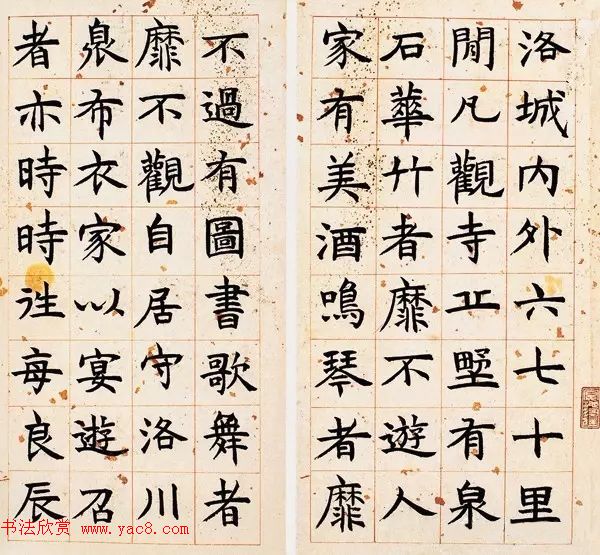 洛城內外六七十里
閒凡觀寺丘墅有泉
石華竹者靡不遊人
家有美酒鳴琴者靡
不過有圖書歌舞者
靡不觀自居守洛川
臮布衣家以宴遊召
者亦時時往每良辰
书法欣赏 www.yac8.com